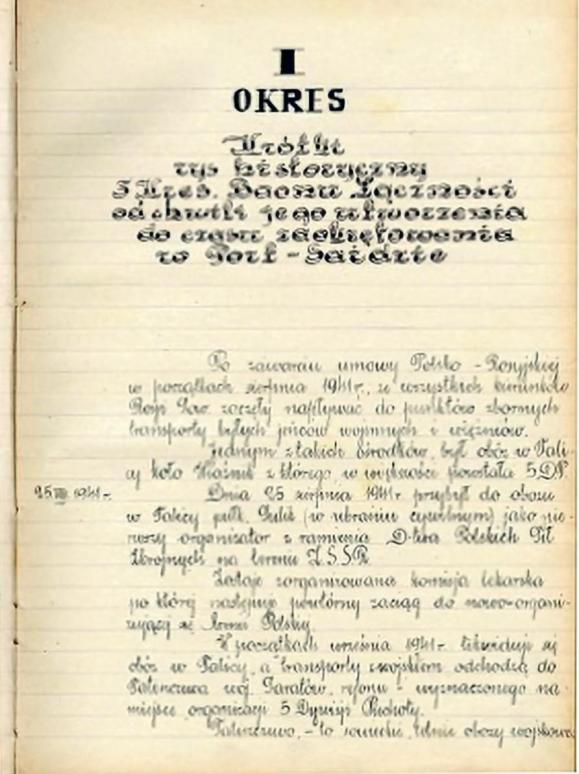 I
OKRES
Krótki
rys historyczny
5 Kres. Baonu Łączności
od chwili jego utworzenia
do czasu zaokrętowania
w Port-Saidzie
Po zawarciu umowy Polsko-Rosyjskiej
w początkach sierpnia 1941r., ze wszystkich kierunków
Rosji Sow. zaczęły napływać do punktów zbornych
transporty byłych jeńców wojennych i więźniów.
Jednym z takich ośrodków, był obóz w Tali-
cy koło z którego w większości powstała 5DP.
25 VIII 1941r.
Dnia 25 sierpnia 1941r. przybył do obozu
w Talicy ppłk. Gulik (w ubraniu cywilnym) jako pie-
rwszy organizator z ramienia D-twa Polskich Sił
Zbrojnych na terenie Z.S.S.R.
Zostaje zorganizowana komisja lekarska
po której następuje powtórny zaciąg do nowo-organi-
zującej się Armii Polskiej.
W początkach września 1941r. likwiduje się
obóz w Talicy, a transporty z wojskiem odchodzą do
Tatiszczewa woj. Saratów, rejonu - wyznaczonego na
miejsce organizacji 5 Dywizji Piechoty.
Tatiszczewo, - to sowieckie, letnie obozy wojskowe,